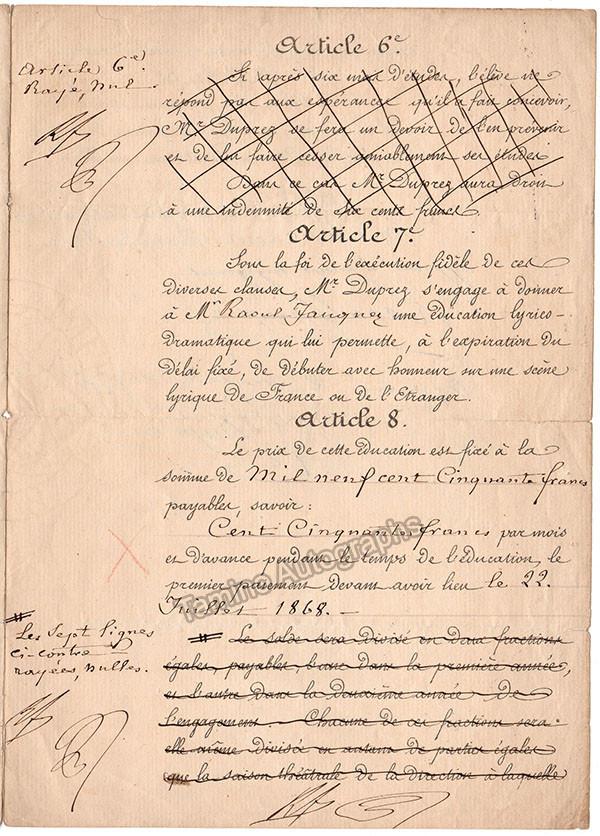 Article 6e.
Article 6e.
Rayé, nul
Si après six mois d'études, l'élève ne
répond pas aux espérances qu'il a fait concevoir,
Mr. Duprez se fera un devoir de l'en prévenir
et de lui faire cesser amiablement ses études
Dans ce cas Mr. Duprez aura droit
à une indemnité de six cents francs.
Article 7e.
Sous la foi de l'exécution fidèle de ces
diverses clauses, Mr. Duprez s'engage à donner
à Mr Raoul une éducation lyrico-
dramatique qui lui permette, à l'expiration du
délai fixé, de débuter avec honneur sur une scène
lyrique de France ou de l'Etranger.
Article 8.
Le prix de cette éducation est fixé à la
somme de Mil neuf cent Cinquante francs
payables, savoir :
Cent Cinquante francs par mois
et d'avance pendant le temps de l'éducation, le
premier paiement devant avoir lieu le 22.
Juillet 1868. -
Tamino Autographs
# Les Sept lignes
ci-contre
rayées, nulles.
# Le solde sera divisé en deux fractions
égales, payables, l'une dans la première année,
et l'autre dans la deuxième année de
l'engagement. Chacune de ces fractions sera
elle même divisée en autant de parties égales
que la saison théâtrale de la direction à laquelle